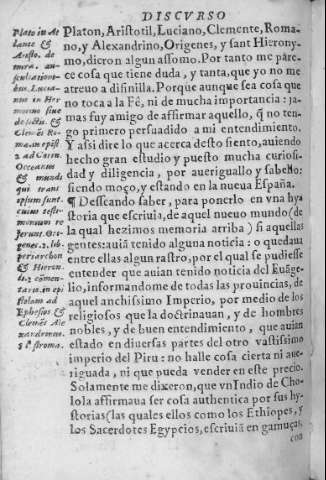 DISCVRSO
Plato in At
lante &
Aristo. de
mira. au-
scultationi-
bus. Lucia-
nus in Her
momo siue
de sectis. &
Clemēs Ro-
ma. in epist
2 ad Corin.
Oceanum
& mundi
qui trans
ipsum sunt.
cuius testi-
monium re
ferunt Ori-
genes. 2. lib.
periarchon
& Hieron.
li. 2. cōmen-
taria. in epi
stolam ad
Ephesios &
Clemēs Ale
xandrinus.
5 stroma.
Platon, Aristotil, Luciano, Clemente, Roma-
no, y Alexandrino, Origenes, y sant Hierony-
mo, dieron algun assomo. Por tanto me parè-
ce cosa que tiene duda, y tanta, que yo no me
atreuo a difinilla. Porque aunque sea cosa que
no toca a la Fê, ni de mucha importancia: ja-
mas fuy amigo de affirmar aquello, q̃ no ten-
go primero persuadido a mi entendimiento.
Y assi dire lo que acerca desto siento, auiendo
hecho gran estudio y puesto mucha curiosi-
dad y diligencia, por aueriguallo y sabello:
siendo moço, y estando en la nueua España.
¶ Desseando saber, para ponerlo en vna hy
storia que escriuia, de aquel nueuo mundo (de
la qual hezimos memoria arriba) si aquellas
gentes: auiã tenido alguna noticia: o quedaua
entre ellas algun rastro, por el qual se pudiesse
entender que auian tenido noticia del Euãge-
lio, informandome de todas las prouincias, de
aquel anchissimo Imperio, por medio de los
religiosos que la doctrinauan, y de hombres
nobles, y de buen entendimiento, que auian
estado en diuersas partes del otro vastissimo
imperio del Piru: no halle cosa cierta ni aue-
riguada, ni que pueda vender en este precio.
Solamente me dixeron, que vn Indio de Cho-
lola affirmaua ser cosa authentica por sus hy-
storias (las quales ellos como los Ethiopes, y
los Sacerdotes Egypcios, escriuiã en gamuças,
con